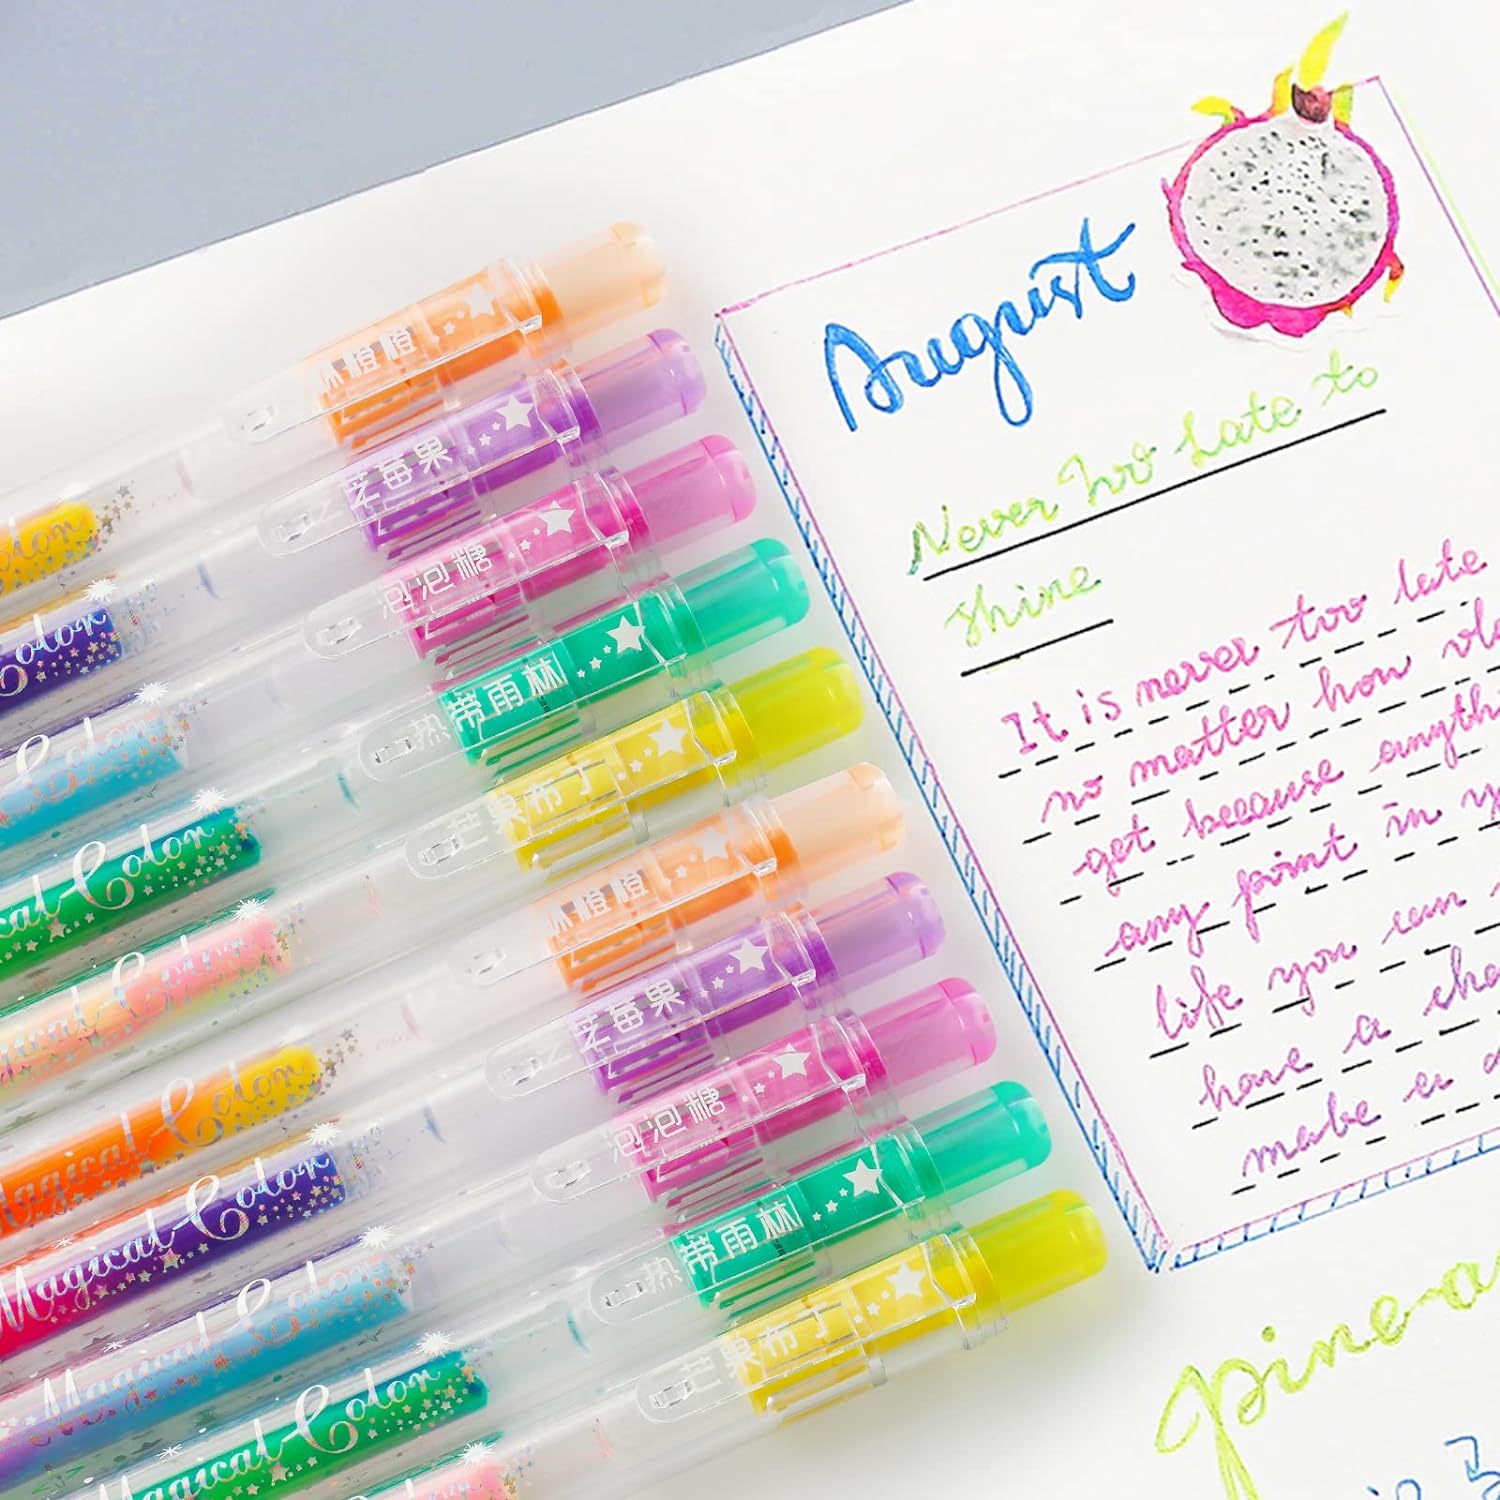 August
Never too Late to
shine
It is never too late
no matter how
get because
any point in
life you can
have a
make
pine-a
橙橙
芝莓果
泡泡糖
热带雨林
芒果布丁
橙橙
芝莓果
泡泡糖
热带雨林
芒果布丁
Color
Color
Color
Color
Color
Magical Color
Magical Color
Magical Color
Magical Color
Color